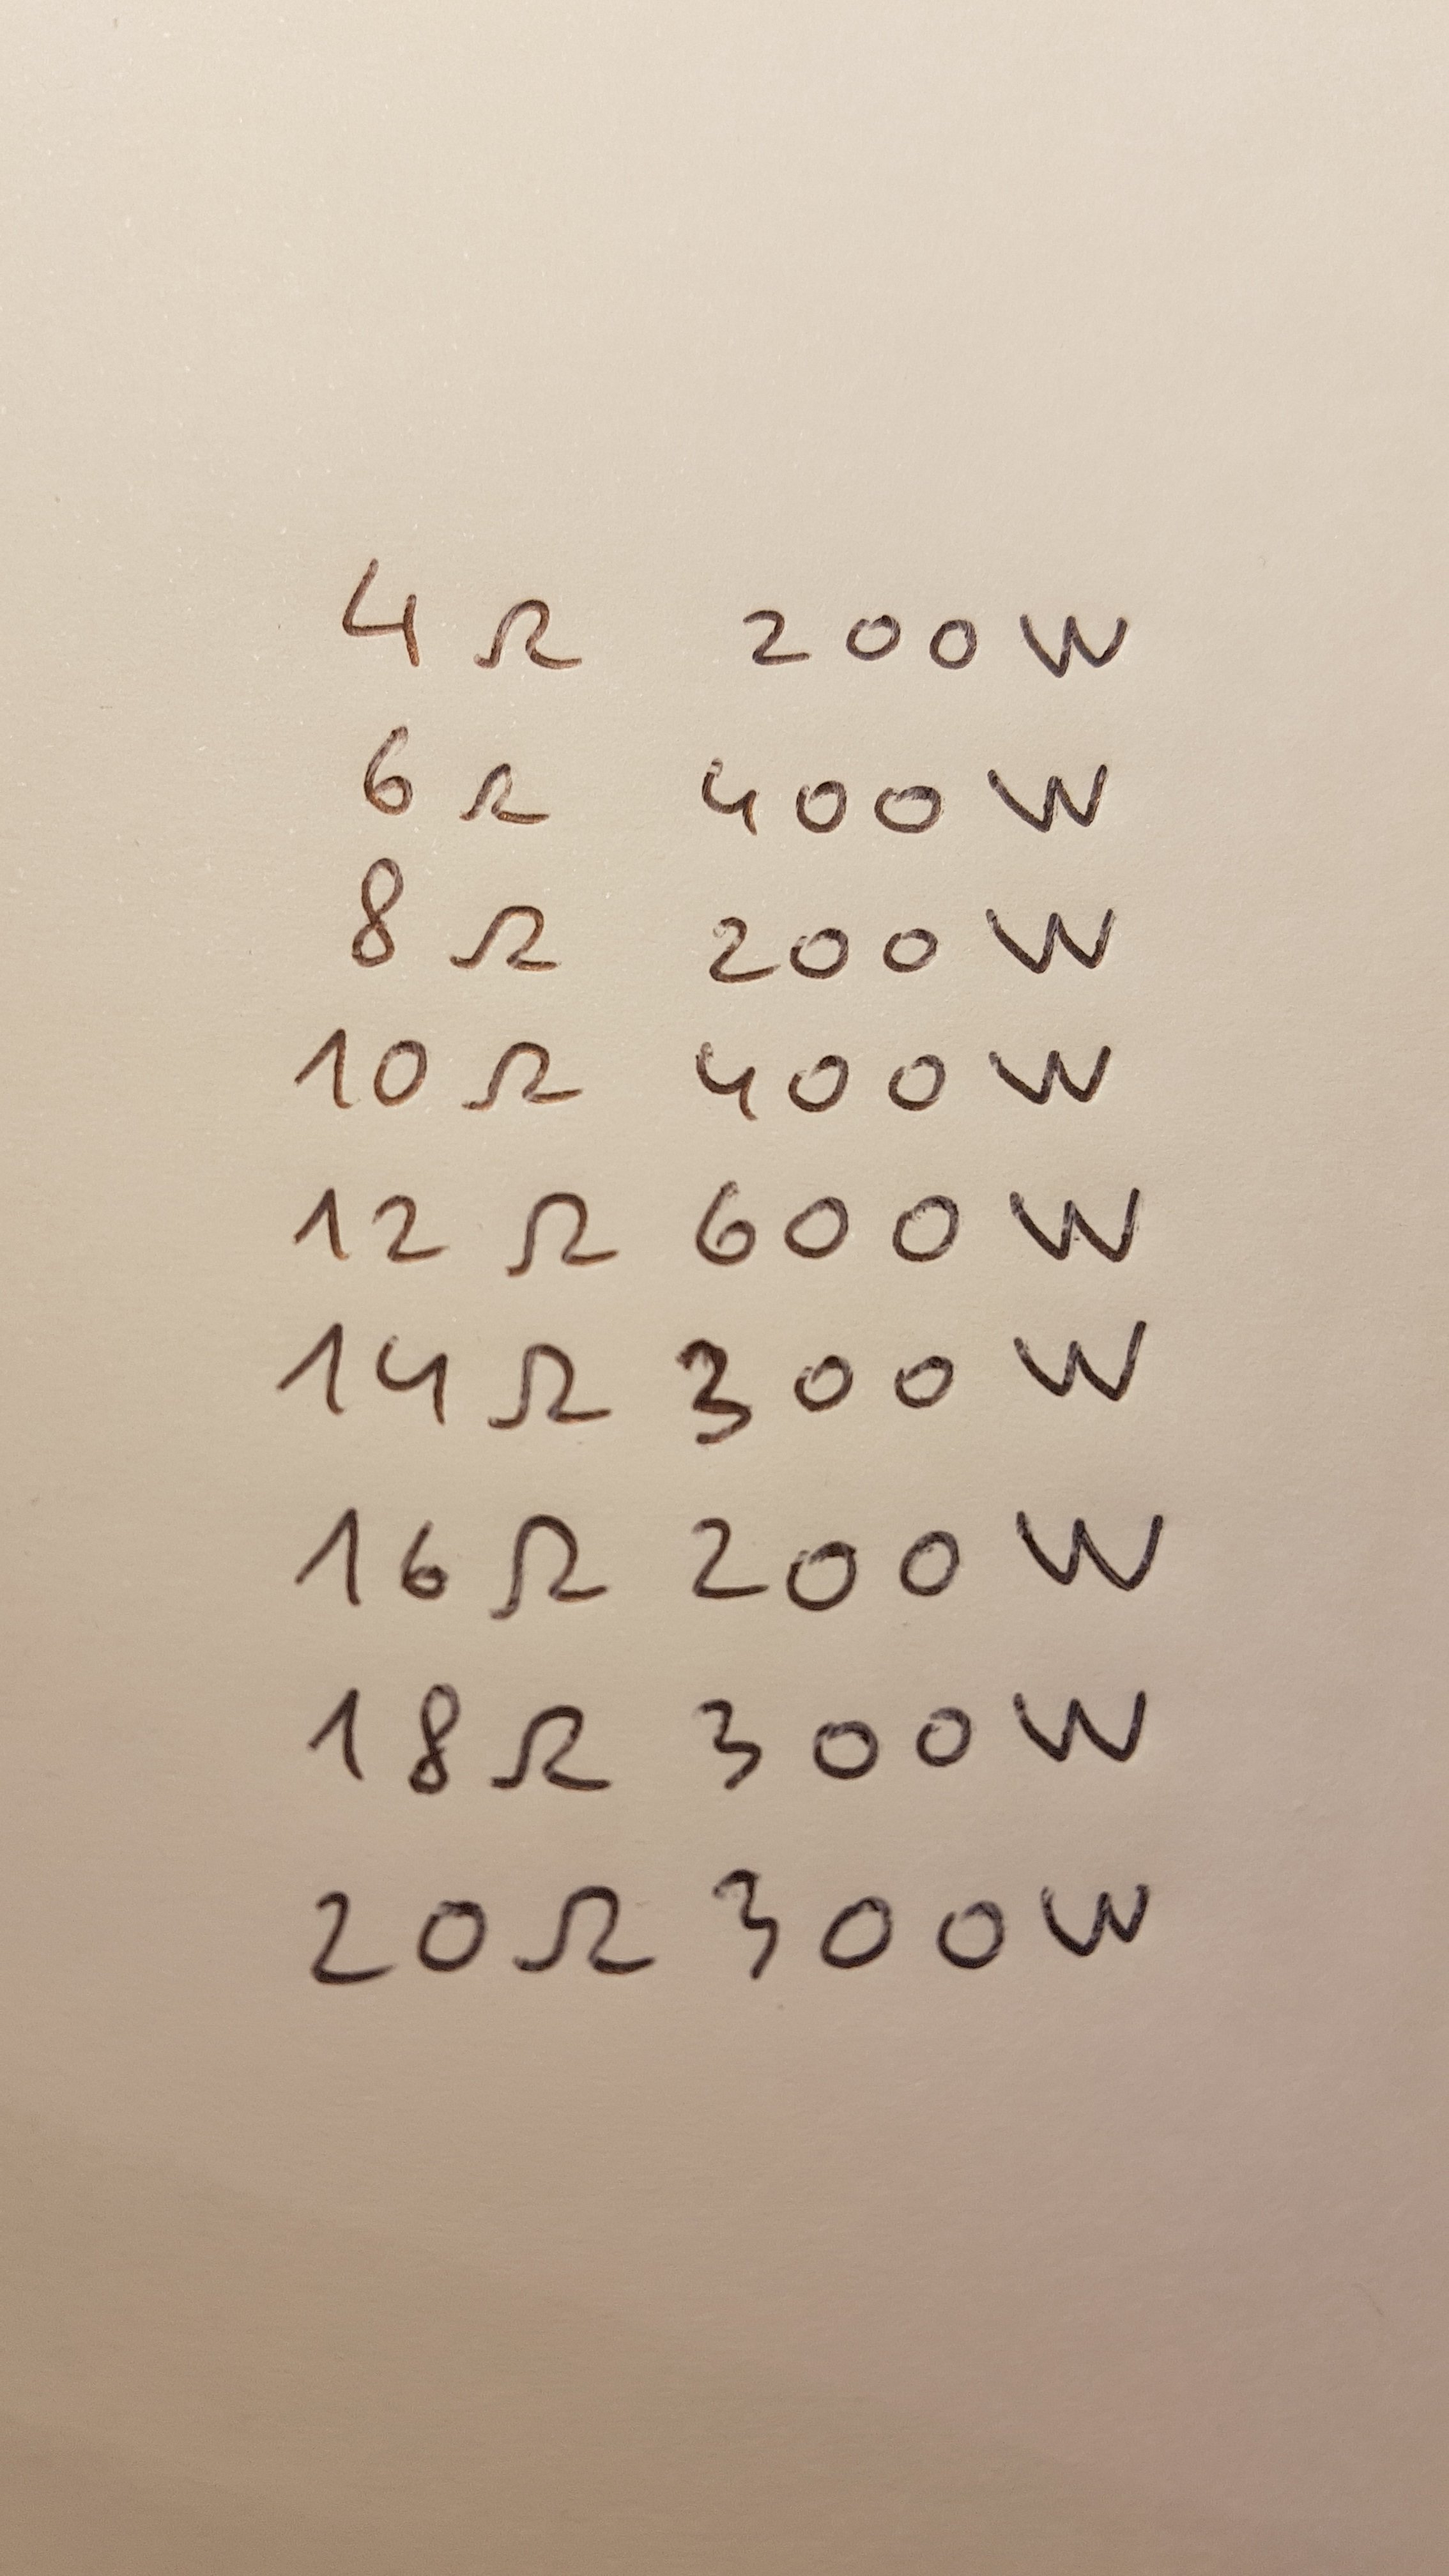 4 Ω 200 W
6 Ω 400 W
8 Ω 200 W
10 Ω 400 W
12 Ω 600 W
14 Ω 300 W
16 Ω 200 W
18 Ω 300 W
20 Ω 300 W